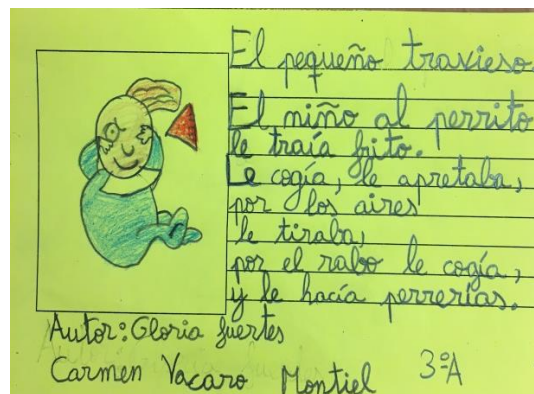 El pequeño travieso.
El niño al perrito
le traía frito.
Le cogía, le apretaba,
por los aires
le tiraba,
por el rabo le cogía,
y le hacía perrerías.
Autor: Gloria fuertes
Carmen Vacaro Montiel 3ºA